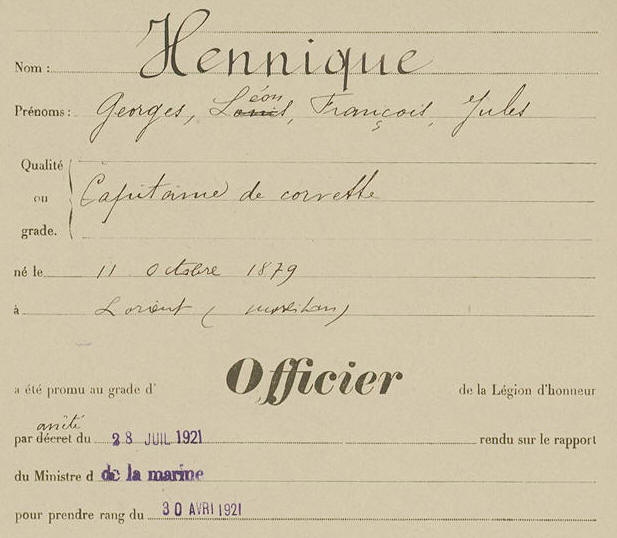 Nom : Hennique
éon
Prénoms : Georges, Louis, François, Jules
Qualité
ou
grade.
Capitaine de corvette
né le 11 Octobre 1879
à Lorient (Morbihan)
a été promu au grade d' Officier de la Légion d'honneur
arrêté
par décret du 28 JUIL 1921 rendu sur le rapport
du Ministre d de la marine
pour prendre rang du 30 AVRI 1921